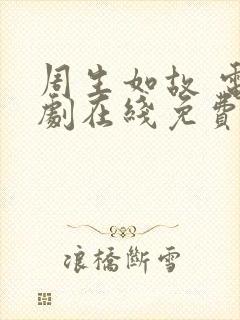 周生如故 電
劇在綫免費
浪橋斷雪